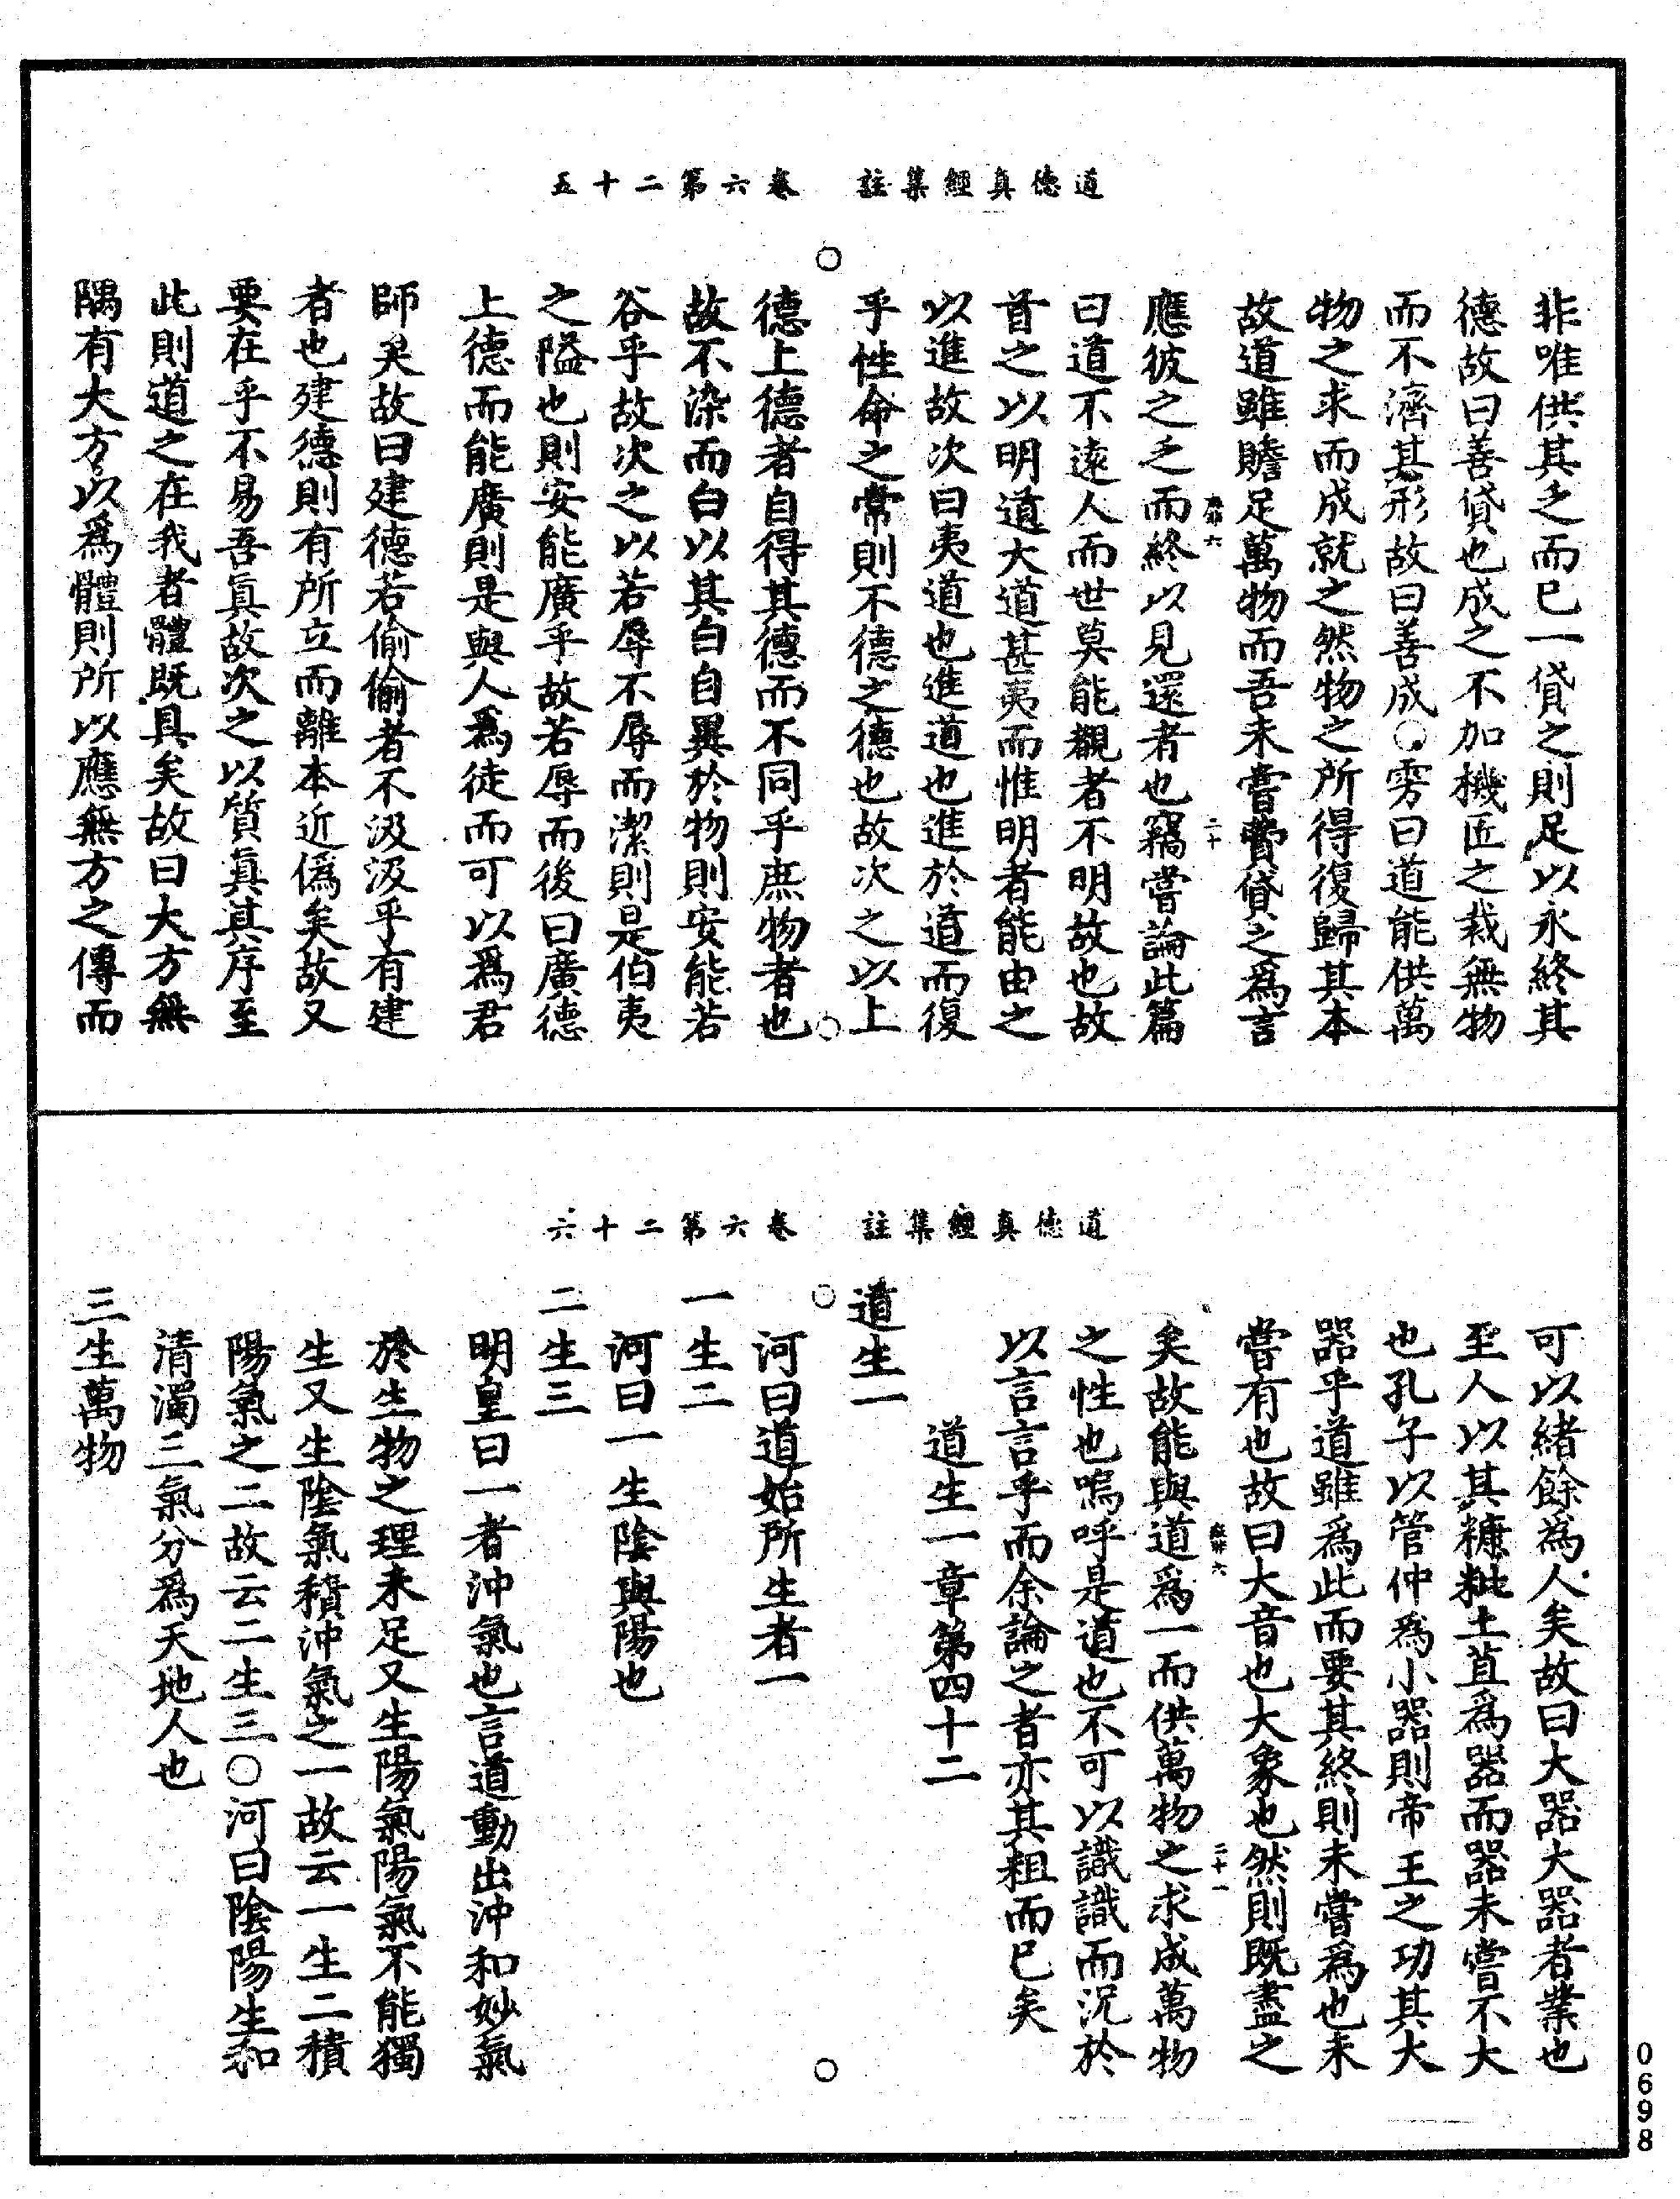 道德真經集註　卷六第二十五
非唯供其乏而已一貸之則足以永終其
德故曰善貸也成之不加機匠之裁無物
而不濟其形故曰善成○雱曰道能供萬
物之求而成就之然物之所得復歸其本
故道雖贍足萬物而吾未嘗嘗貸之爲言
應彼之乏而終以見還者也竊嘗論此篇
曰道不遠人而世莫能覩者不明故也故
首之以明道大道甚夷而惟明者能由之
以進故次曰夷道也進道也進於道而復
乎性命之常則不德之德也故次之以上
德上德者自得其德而不同乎庶物者也
故不染而白以其白自異於物則安能若
谷乎故次之以若辱不辱而潔則是伯夷
之隘也則安能廣乎故若辱而後曰廣德
上德而能廣則是與人爲徒而可以爲君
師矣故曰建德若偷偷者不汲汲乎有建
者也建德則有所立而離本近僞矣故又
要在乎不易吾眞故次之以質眞其序至
此則道之在我者體既具矣故曰大方無
隅有大方以爲體則所以應無方之傳而
二十
道德真經集註　卷六第二十六
可以緒餘爲人矣故曰大器大器者業也
至人以其糠粃土苴爲器而器未嘗不大
也孔子以管仲爲小器則帝王之功其大
器乎道雖爲此而要其終則未嘗爲也未
嘗有也故曰大音也大象也然則既盡之
矣故能與道爲一而供萬物之求成萬物
之性也嗚呼是道也不可以識識而況於
以言言乎而余論之者亦其粗而已矣
道生一章第四十二
道生一
河曰道始所生者一
一生二
河曰一生陰與陽也
二生三
明皇曰一者沖氣也言道動出沖和妙氣
於生物之理未足又生陽氣陽氣不能獨
生又生陰氣積沖氣之一故云一生二積
陽氣之二故云二生三○河曰陰陽生和
清濁三氣分爲天地人也
三生萬物
二十一
0698